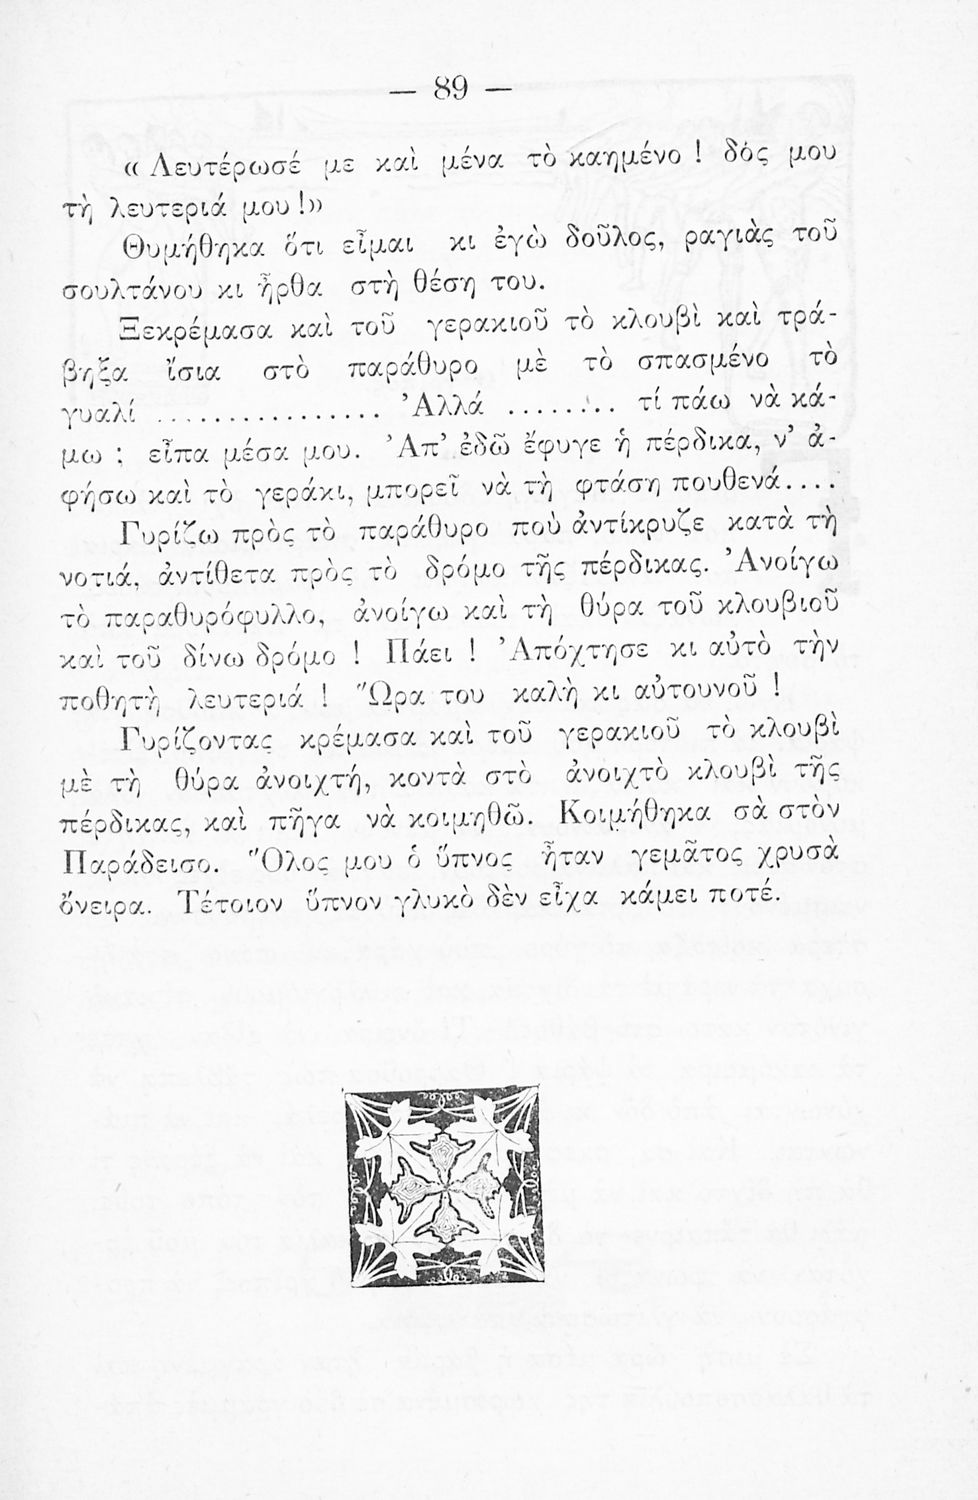 — 89 —
« Λευτέρωσέ με καὶ μένα τὸ καημένο ! δός μου
τὴ λευτεριά μου !»
Θυμήθηκα ὅτι εἶμαι κι ἐγὼ δοῦλος, ραγιὰς τοῦ
σουλτάνου κι ἦρθα στὴ θέση του.
Ξεκρέμασα καὶ τοῦ γερακιοῦ τὸ κλουβὶ καὶ τρά-
βηξα ἴσια στὸ παράθυρο μὲ τὸ σπασμένο τὸ
γυαλί ................ Ἀλλά ........ τί πάω νὰ κά-
μω ; εἶπα μέσα μου. Ἀπ’ ἐδῶ ἔφυγε ἡ πέρδικα, ν’ ἀ-
φήσω καὶ τὸ γεράκι, μπορεῖ νὰ τὴ φτάση πουθενά....
Γυρίζω πρὸς τὸ παράθυρο ποὺ ἀντίκρυζε κατὰ τὴ
νοτιά, ἀντίθετα πρὸς τὸ δρόμο τῆς πέρδικας. Ἀνοίγω
τὸ παραθυρόφυλλο, ἀνοίγω καὶ τὴ θύρα τοῦ κλουβιοῦ
καὶ τοῦ δίνω δρόμο ! Πάει ! Ἀπόχτησε κι αὐτὸ τὴν
ποθητὴ λευτεριά ! Ὥρα του καλὴ κι αὐτουνοῦ !
Γυρίζοντας κρέμασα καὶ τοῦ γερακιοῦ τὸ κλουβὶ
μὲ τὴ θύρα ἀνοιχτή, κοντὰ στὸ ἀνοιχτὸ κλουβὶ τῆς
πέρδικας, καὶ πῆγα νὰ κοιμηθῶ. Κοιμήθηκα σὰ στὸν
Παράδεισο. Ὅλος μου ὁ ὕπνος ἦταν γεμᾶτος χρυσὰ
ὄνειρα. Τέτοιον ὕπνον γλυκὸ δὲν εἶχα κάμει ποτέ.